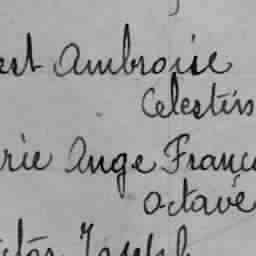 est Ambroise
Celestin
rie Ange Franç
Octave
ctor Joseph